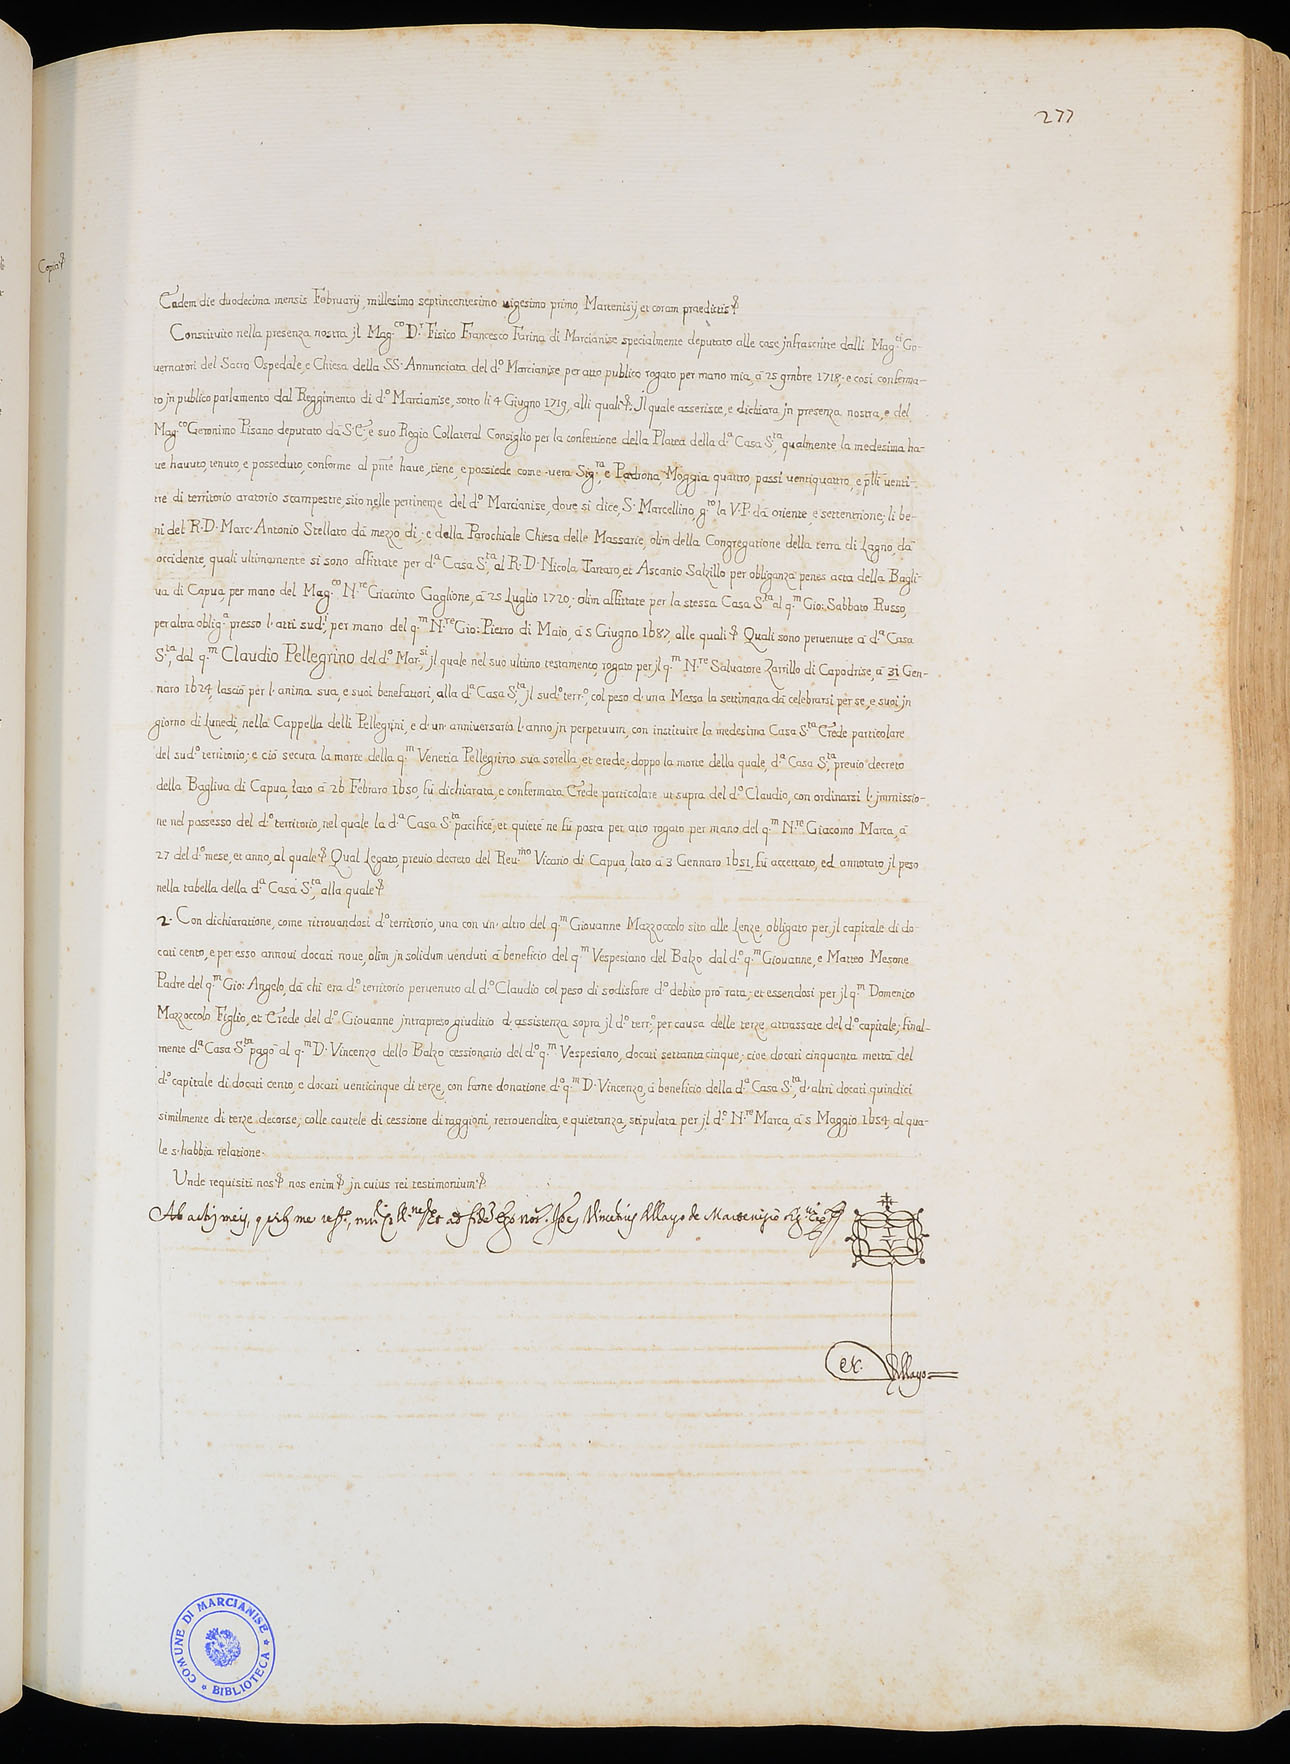 277
Copia
Eadem die duodecima mensis Februarij, millesimo septincentesimo uigesimo primo, Martenisij, et coram praedictis
Constituito nella presenza nostra jl Mag.co D.r Fisico Francesco Farina di Marcianise specialmente deputato alle cose jnfrascritte dalli Mag.ci Go-
uernatori del Sacro Ospedale, e Chiesa della SS. Annunciata del d.o Marcianise per atto publico rogato per mano mia, à 25 9mbre 1718; e così conferma-
to jn publico parlamento dal Reggimento di d.o Marcianise, sotto li 4 Giugno 1719, alli quali. Jl quale asserisce, e dichiara jn presenza nostra, e del
Mag.co Geronimo Pisano deputato dà S.E. e suo Regio Collateral Consiglio per la confettione della Platea della d.a Casa S.ta, qualmente la medesima ha-
ue hauuto, tenuto, e posseduto, conforme al pnte haue, tiene, e possiede come uera Sig.ra, e Padrona, Moggia quattro, passi uentiquattro, e uenti-
trè di territorio aratorio scampestre, sito nelle pertinenze del d.o Marcianise, doue si dice, S. Marcellino, g.to la V.P. dà oriente, e settentrione; li be-
ni del R.D. Marc'Antonio Stellato dà mezzo dì; e della Parochiale Chiesa delle Massarie, olim della Congregatione della terra di Lagno, dà
occidente, quali ultimamente si sono affittate per d.a Casa S.ta, al R.D. Nicola Tartaro, et Ascanio Salzillo per obliganza penes acta della Bagli-
ua di Capua, per mano del Mag.co N.re Giacinto Gaglione, à 25 Luglio 1720; olim affittate per la stessa Casa S.ta al q.m Gio: Sabbato Russo,
per altra oblig.a presso l'atti sud.i, per mano del q.m N.re Gio: Pietro di Maio, à 5 Giugno 1687, alle quali Quali sono peruenute à d.a Casa
S.ta, dal q.m Claudio Pellegrino del d.o Mar.si, jl quale nel suo ultimo testamento, rogato per jl q.m N.re Saluatore Zarrillo di Capodrise, à 31 Gen-
naro 1624, lasciò per l'anima sua, e suoi benefattori, alla d.a Casa S.ta, jl sud.o terr.o, col peso d'una Messa la settimana dà celebrarsi per se, e suoi jn
giorno di Lunedì, nella Cappella delli Pellegrini, e d'un'anniuersario l'anno jn perpetuum, con instituire la medesima Casa S.ta Erede particolare
del sud.o territorio; e ciò secuta la morte della q.m Venetia Pellegrino sua sorella, et erede; doppo la morte della quale, d.a Casa S.ta, preuio decreto
della Bagliua di Capua, lato à 26 Febraro 1650, fù dichiarata, e confermata Erede particolare ut supra del d.o Claudio, con ordinarsi l'jmmissio-
ne nel possesso del d.o territorio, nel quale la d.a Casa S.ta pacificè, et quietè ne fù posta per atto rogato per mano del q.m N.re Giacomo Marca, à
27 del d.o mese, et anno, al quale Qual Legato, preuio decreto del Reu.mo Vicario di Capua, lato à 3 Gennaro 1651, fù accettato, ed annotato jl peso
nella tabella della d.a Casa S.ta, alla quale
2. Con dichiaratione, come ritrouandosi d.o territorio, una con un'altro del q.m Giouanne Mazzoccolo sito alle Lenze, obligato per jl capitale di do-
cati cento, e per esso annoui docati noue, olim jn solidum uenduti à beneficio del q.m Vespesiano del Balzo dal d.o q.m Giouanne, e Matteo Mesone
Padre del q.m Gio: Angelo, dà chi era d.o territorio peruenuto al d.o Claudio col peso di sodisfare d.o debito prò rata; et essendosi per jl q.m Domenico
Mazzoccolo Figlio, et Erede del d.o Giouanne jntrapreso giuditio d'assistenza sopra jl d.o terr.o, per causa delle terze attrassate del d.o capitale; final-
mente d.a Casa S.ta pagò al q.m D. Vincenzo dello Balzo cessionario del d.o q.m Vespesiano, docati settantacinque; cioè docati cinquanta mettà del
d.o capitale di docati cento, e docati uenticinque di terze, con farne donatione d.o q.m D. Vincenzo, à beneficio della d.a Casa S.ta, d'altri docati quindici
similmente di terze decorse; colle cautele di cessione di raggioni, retrouendita, e quietanza, stipulata per jl d.o N.re Marca, à 5 Maggio 1654, al qua-
le s'habbia relatione.
Unde requisiti nos nos enim jn cuius rei testimonium
Ab actis meis, me ad fidem ego not. Vincentius Allayo de Martenisio
ex. Allayo
COMUNE DI MARCIANISE * BIBLIOTECA *